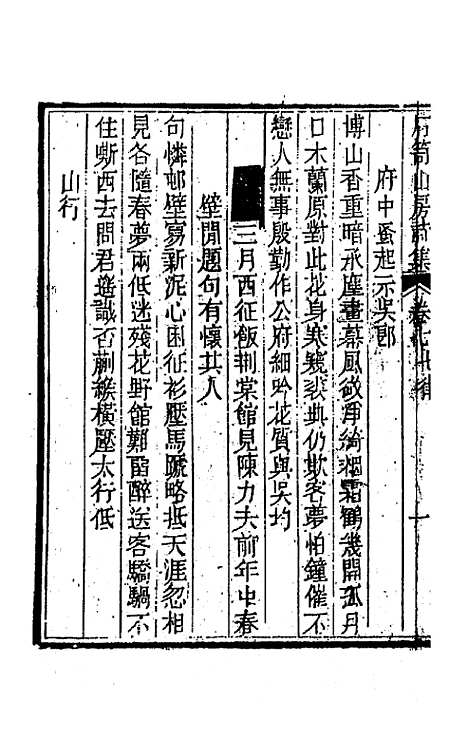 山房詩集 卷七
府中蚤起示吳郎
博山香重暗承塵畫幕風欹淨綺烟霜鶴幾開孤月
口木蘭原對此花身寒窺裘典仍欺客夢怕鐘催不
戀人無事殷勤作公府細吟花質與吳均
三月西征飯荆棠館見陳力夫前年中春
壁閒題句有懷其人
句憐邨壁寫新泥心困征衫壓馬蹏略抵天涯忽相
見各隨春夢兩低迷殘花野館難留醉送客驕騧不
住嘶西去問君遙識否蒯緱橫壓太行低
山行